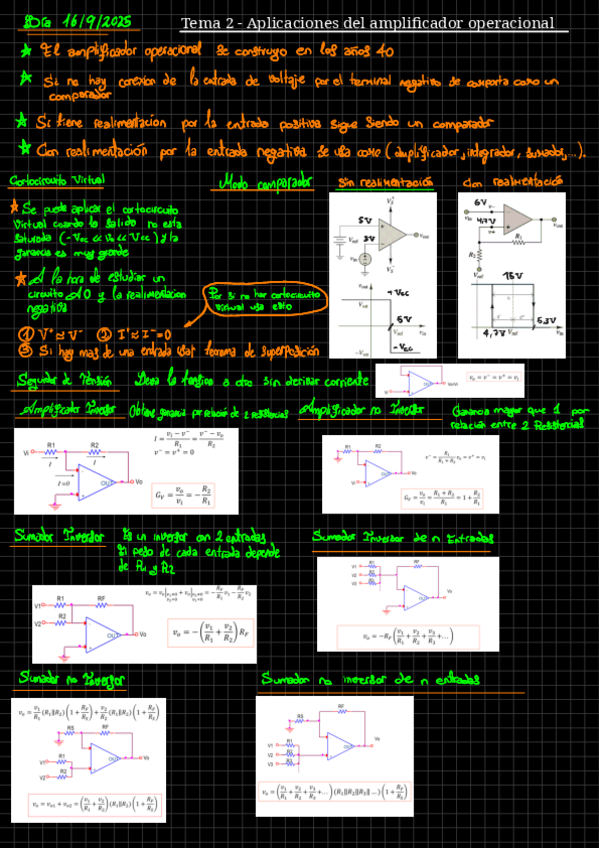 Día 16/9/2025
Tema 2 - Aplicaciones del amplificador operacional
El amplificador operacional se construyo en los años 40
Si no hay conexion de la entrada de voltaje por el terminal negativo se comporta como un
comparador
Si tiene realimentacion por la entrada positiva sigue siendo un comparador
Con realimentación por la entrada negativa se usa como (amplificador, integrador, sumador,...).
Cortocircuito Virtual
Se puede aplicar el cortocircuito
Virtual cuando la salida no esta
saturada (-Vcc << Vo << Vcc) y la
ganancia es muy grande
A la hora de estudiar un
circuito AO y la realimentacion
negativa
Por si no hay cortocircuito
virtual usa esto
① V⁺≈V⁻ ② I⁺≈I⁻=0
③ Si hay mas de una entrada usar teorema de superposición
Modo comparador
Sin realimentación
5V
3V
+Vcc
5V
-Vcc
Con realimentación
6V
4,7V
R1
R2
15V
4,7V
5,3V
Seguidor de Tensión
Lleva la tension a otro sin derivar corriente
v₀ = v⁻ = v⁺ = vᵢ
Amplificador Inversor
Obtiene ganancia por relación de 2 resistencias
Vi R1 R2
I I
I=0
OUT Vo
I = (vᵢ − v⁻)/R₁ = (v⁻ − v₀)/R₂
v⁻ = v⁺ = 0
G_V = v₀/vᵢ = −R₂/R₁
Amplificador no Inversor
Ganancia mayor que 1 por
relación entre 2 Resistencias
R1 R2
OUT Vo
v⁻ = R₁/(R₁ + R₂) v₀ = v⁺ = vᵢ
G_V = v₀/vᵢ = (R₁ + R₂)/R₁ = 1 + R₂/R₁
Sumador Inversor
Es un inversor con 2 entradas
El peso de cada entrada depende
de R1 y R2
V1 R1 RF
V2 R2
OUT Vo
v₀ = −(v₁/R₁ + v₂/R₂) R_F
Sumador Inversor de n Entradas
V1 R1 RF
V2 R2
V3 R3
OUT Vo
v₀ = −R_F (v₁/R₁ + v₂/R₂ + v₃/R₃ + ...)
Sumador no Inversor
v₀ = v₁/R₁ (R₁||R₂)(1 + R_F/R_S) + v₂/R₂ (R₁||R₂)(1 + R_F/R_S)
RS RF
V1 R1
V2 R2
OUT Vo
v₀ = v₀₁ + v₀₂ = (v₁/R₁ + v₂/R₂)(R₁||R₂)(1 + R_F/R_S)
Sumador no inversor de n entradas
RF
RS
V1 R1
V2 R2
V3 R3
OUT Vo
v₀ = (v₁/R₁ + v₂/R₂ + v₃/R₃ + ...)(R₁||R₂||R₃|| ...)(1 + R_F/R_S)